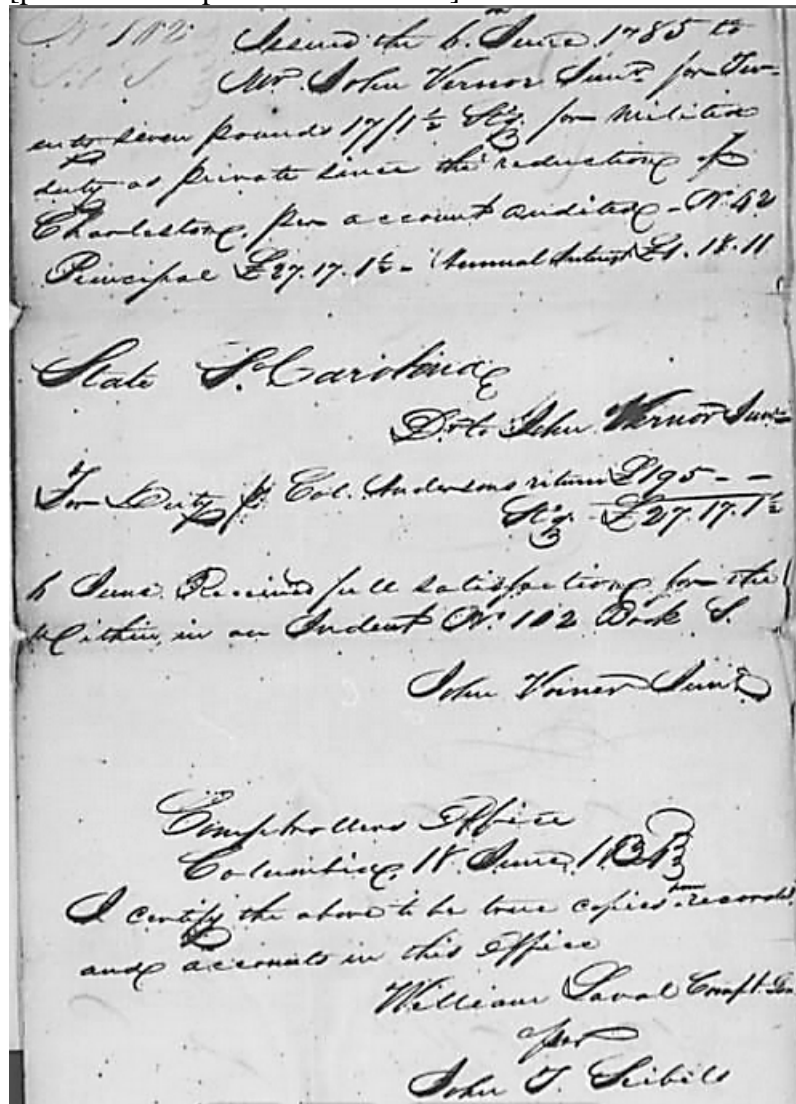 No 102 Issued the 6. June 1785 to
Lib. S. Mr. John Vernor Junr. for Twe-
enty seven pounds 17/1½ Stg. for militia
duty as private since the reduction of
Charleston, per account audited - No 42
Principal £27.17.1½ - Annual Interest £1.18.11
State So. Carolina
Dr. to John Vernor Junr.
For Duty pr Col. Andersons return £195 - -
Stg. - £27.17.1½
6 June Received full satisfaction for the
within in an Indent No. 102 Book S.
John Voiner Junr.
Comptrollers Office
Columbia, 18 June,
I certify the above to be true copies from records
and accounts in this Office
William Laval Compt. Gen
per
John T. Seibels